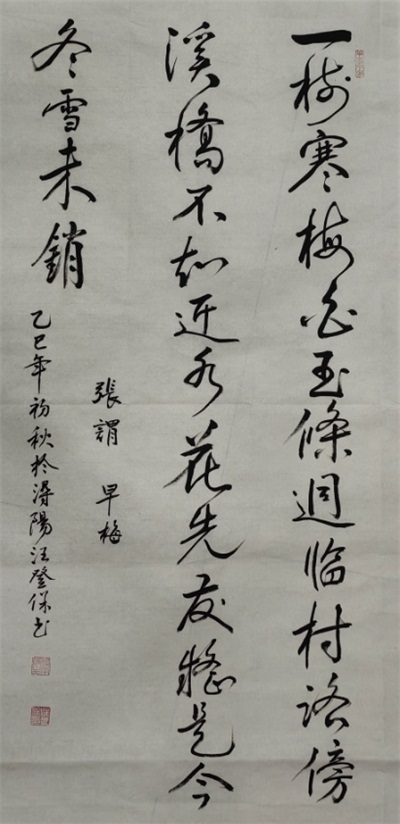 一树寒梅白玉條迥临村路傍
溪橋不知近水花先发疑是今
冬雪未銷
張謂 早梅
乙巳年初秋於潯陽汪登保书